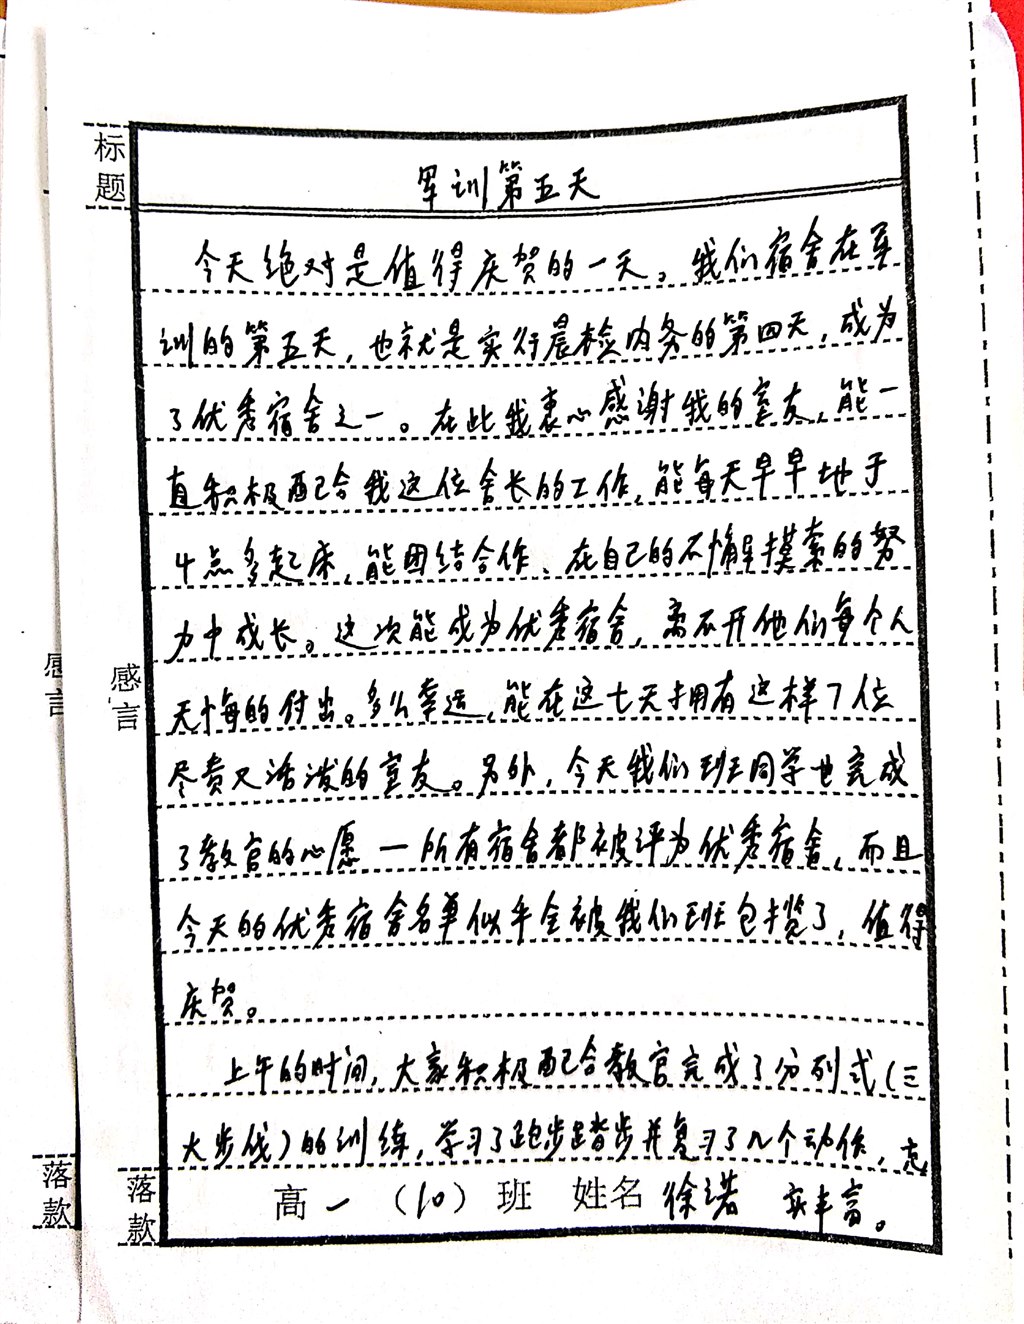 标题
军训第五天
今天绝对是值得庆贺的一天。我们宿舍在军
训的第五天，也就是实行晨检内务的第四天，成为
了优秀宿舍之一。在此我衷心感谢我的室友，能一
直积极配合我这位舍长的工作，能每天早早地于
4点多起床，能团结合作、在自己的不懈摸索的努
力中成长。这次能成为优秀宿舍，离不开他们每个人
无悔的付出。多么幸运，能在这七天拥有这样7位
尽责又活泼的室友。另外，今天我们班同学也完成
了教官的心愿—所有宿舍都被评为优秀宿舍，而且
今天的优秀宿舍名单似乎全被我们班包揽了，值得
庆贺。
上午的时间，大家积极配合教官完成了分列式（三
大步伐）的训练，学习了跑步踏步并复习了几个动作，充
实丰富。
感言
落款
高一（10）班 姓名 徐诺
感言
落款